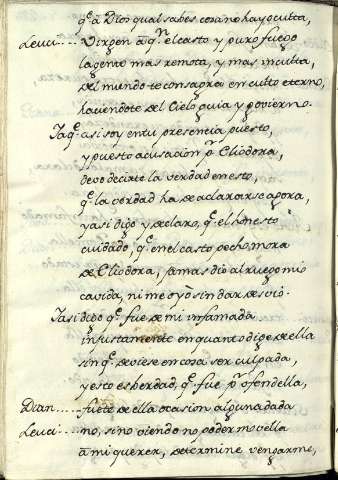 q̃ a Dios qual sabes cosa no hay oculta,
Leuci..... Virgen a q̃n el casto y puro fuego
la gente mas remota, y mas inculta,
del mundo te consagra en culto eterno,
haciendote del Cielo guia y govierno.
Ia q̃ asi soy en tu presencia puesto,
y puesto acusacion pr Eliodora,
devo decirte la verdad en esto,
q̃ la verdad ha de aclararse agora,
y asi digo y declaro, q̃ el honesto
cuidado, q̃ en el casto pecho mora
de Eliodora, jamas dio al ruego mio
cavida, ni me oyò sin dar desvio.
Iasi digo q̃ fue de mi infamada
injustamente en quanto dige de ella
sin q̃ deviese en cosa ser culpada,
y esto es berdad, q̃ fue pr ofendella,
Dian..... fuete de ella ocasion alguna dada
Leuci..... no, sino viendo no poder movella
a mi querer, determine vengarme,